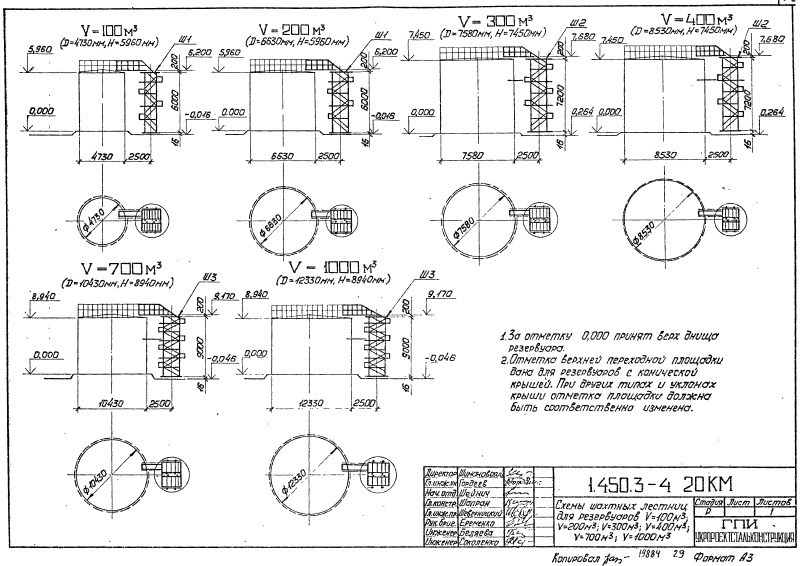 V=100м³
(D=4730мм, H=5960мм)
5,960
Ш1
6,200
200
6000
0,000
-0,046
16
4730
2500
Ф4730
V=200м³
(D=6630мм, H=5960мм)
5,960
Ш1
6,200
200
6000
0,000
-0,046
16
6630
2500
Ф6630
V=300м³
(D=7580мм, H=7450мм)
7,450
Ш2
7,680
200
7200
0,000
0,264
16
7580
2500
Ф7580
V=400м³
(D=8530мм, H=7450мм)
7,450
Ш2
7,680
200
7200
0,000
0,264
16
8530
2500
Ф8530
V=700м³
(D=10430мм, H=8940мм)
8,940
Ш3
9,170
200
9000
0,000
-0,046
16
10430
2500
Ф10430
V=1000м³
(D=12330мм, H=8940мм)
8,940
Ш3
9,170
200
9000
0,000
-0,046
16
12330
2500
Ф12330
1. За отметку 0,000 принят верх днища
резервуара.
2. Отметка верхней переходной площадки
дана для резервуаров с конической
крышей. При других типах и уклонах
крыши отметка площадки должна
быть соответственно изменена.
Директор Шимановский
Гл.инж.ин Гордеев
Нач.отд. Шейнич
Гл.констр. Шапран
Гл.инж.пр. Шеверницкий
Рук.бриг. Еременко
Инженер Беляева
Инженер Соколенко
1.450.3-4 20КМ
Схемы шахтных лестниц
для резервуаров V=100м³;
V=200м³; V=300м³; V=400м³;
V=700м³; V=1000м³
Стадия Лист Листов
Р 1
ГПИ
УКРПРОЕКТСТАЛЬКОНСТРУКЦИЯ
Копировал 19884 29 Формат А3